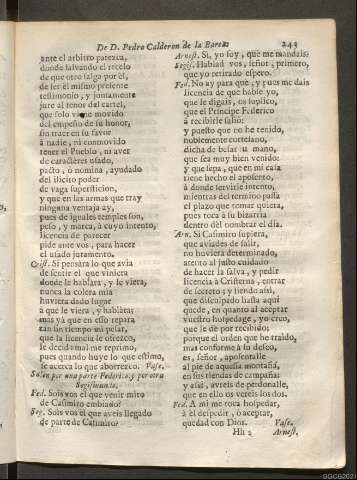 De D. Pedro Calderon de la Barca. 243
ante el arbitro parezca,
donde salvando el rezelo
de que otro salga por èl,
de ser èl mismo presente
testimonio, y juntamente
jure al tenor del cartel,
que solo viene movido
del empeño de su honor,
sin traer en su favor
à nadie, ni conmovido
tener el Pueblo, ni aver
de caractères usado,
pacto, ò nomina, ayudado
del ilicito poder
de vaga supersticion,
y que en las armas que tray
ninguna ventaja ay,
pues de iguales temples son,
peso, y marca, à cuyo intento,
licencia de parecer
pide ante vos, para hacer
el usado juramento.
Crist. Si pensàra lo que avia
de sentir el que viniera
donde le hablàra, y le viera,
nunca la colera mia
huviera dado lugar
à que le viera, y hablàra;
mas yà que en esso repara
tan sin tiempo mi pesar,
que la licencia le ofrezco,
le decid: mal me reprimo,
pues quando huye lo que estimo,
se acerca lo que aborrezco. Vase.
Salen por una parte Federico, y por otra
Segismundo.
Fed. Sois vos el que venir miro
de Casimiro embiado?
Seg. Sois vos el que aveis llegado
de parte de Casimiro?
Arnest. Si, yo soy, què me mandais?
Segis. Hablad vos, señor, primero,
que yo retirado espero.
Fed. No ay para què, y pues me dais
licencia de que hable yo,
que le digais, os suplico,
que el Principe Federico
à recibirle saliò:
y puesto que no he tenido,
noblemente cortesano,
dicha de besar su mano,
que sea muy bien venido:
y que sepa, que en mi casa
tiene hecho el aposento,
à donde servirle intento,
mientras del termino passa
el plazo que tomar quiera,
pues toca à su bizarria
dentro dèl nombrar el dia.
Arn. Si Casimiro supiera,
que aviades de salir,
no huviera determinado,
atento al justo cuidado
de hacer la salva, y pedir
licencia à Cristerna, entrar
de secreto; y siendo assi,
que disculpado hasta aqui
quede, en quanto al aceptar
vuestro hospedage, yo creo,
que le dè por recibido;
porque el orden que he traido,
mas conforme à su deseo,
es, señor, aposentalle
al pie de aquessa montaña,
en sus tiendas de campaña;
y assi, avreis de perdonalle,
que en ello os verèis los dos.
Fed. A mi me toca hospedar,
à èl despedir, ò aceptar,
quedad con Dios. Vase.
Hh 2 Arnest.
SGCB2021